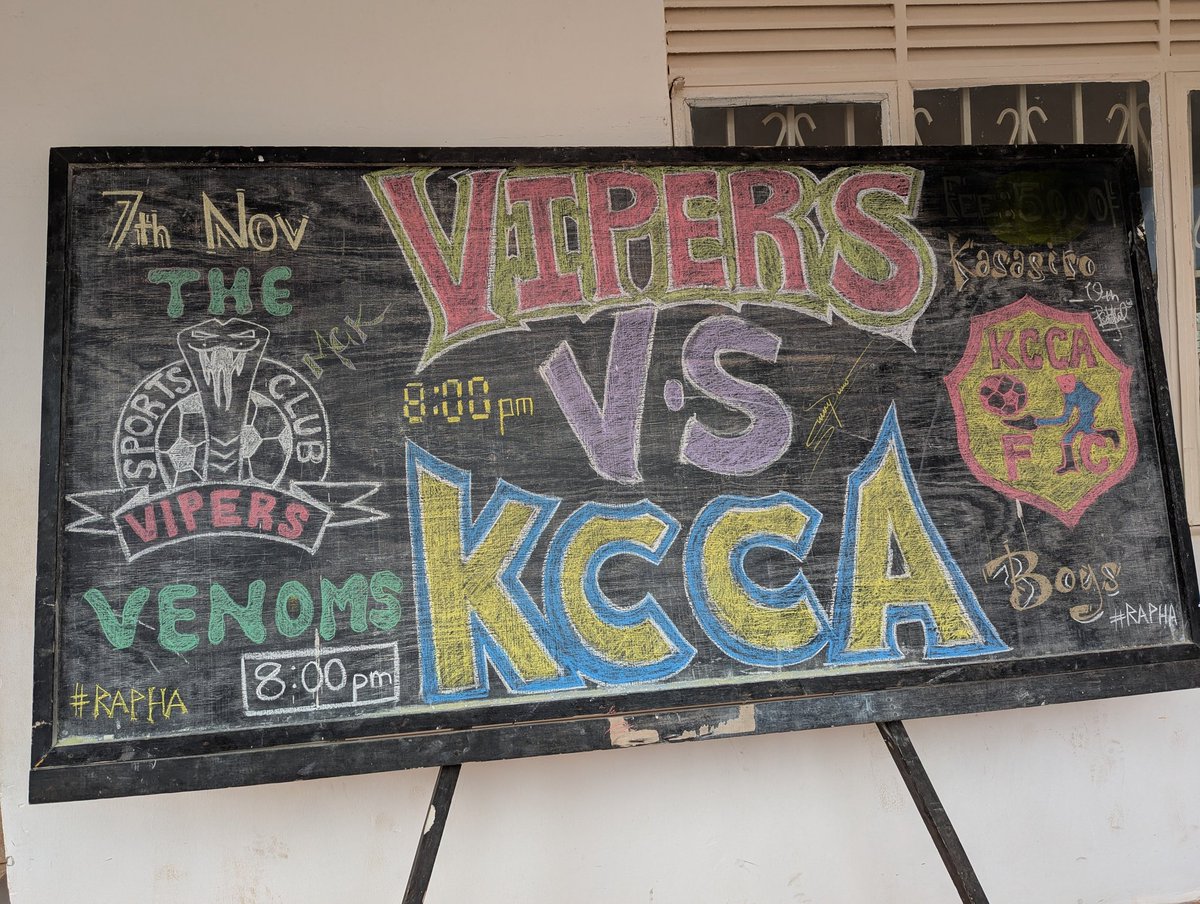 7th Nov
THE
SPORTS CLUB
VIPERS
VENOMS
8:00pm
#RAPHA
VIPERS
V.S
8:00pm
KCCA
Fee: 5000/=
Kasasiro
KCCA
FC
Boys
#RAPHA